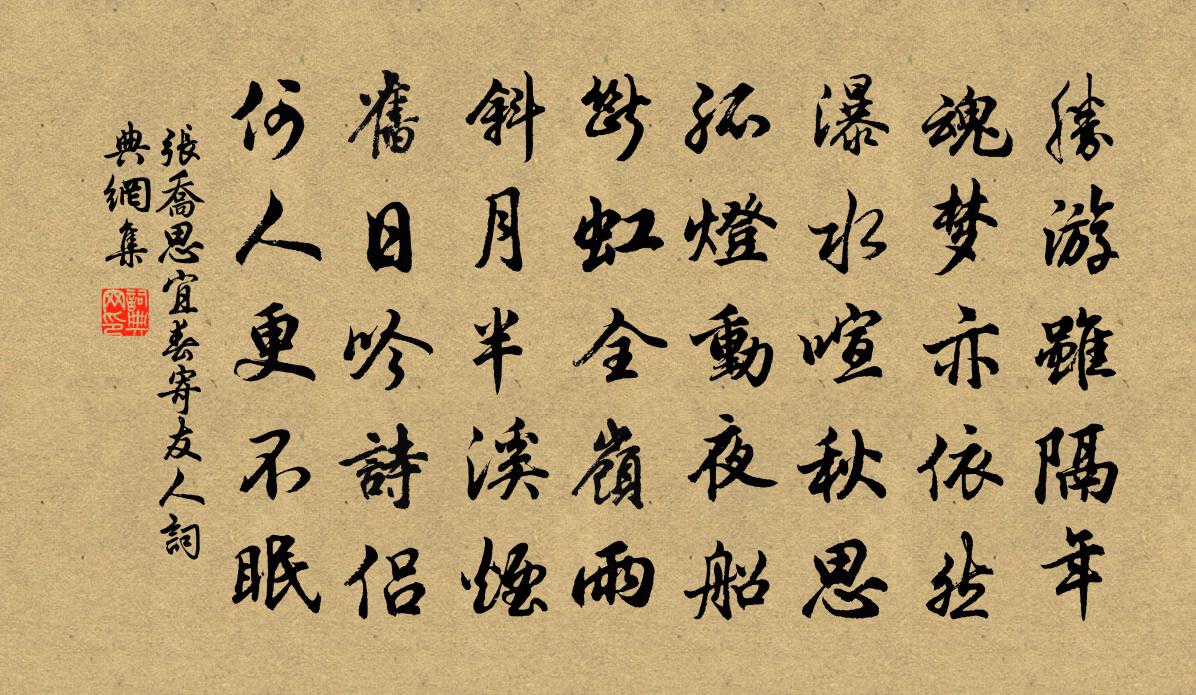 勝游雖隔年
魂梦亦依然
瀑水喧秋思
孤燈動夜船
斷虹全嶺雨
斜月半溪煙
舊日吟詩侶
何人更不眠
張喬思宜春寄友人詞
典網集
詞典
网印